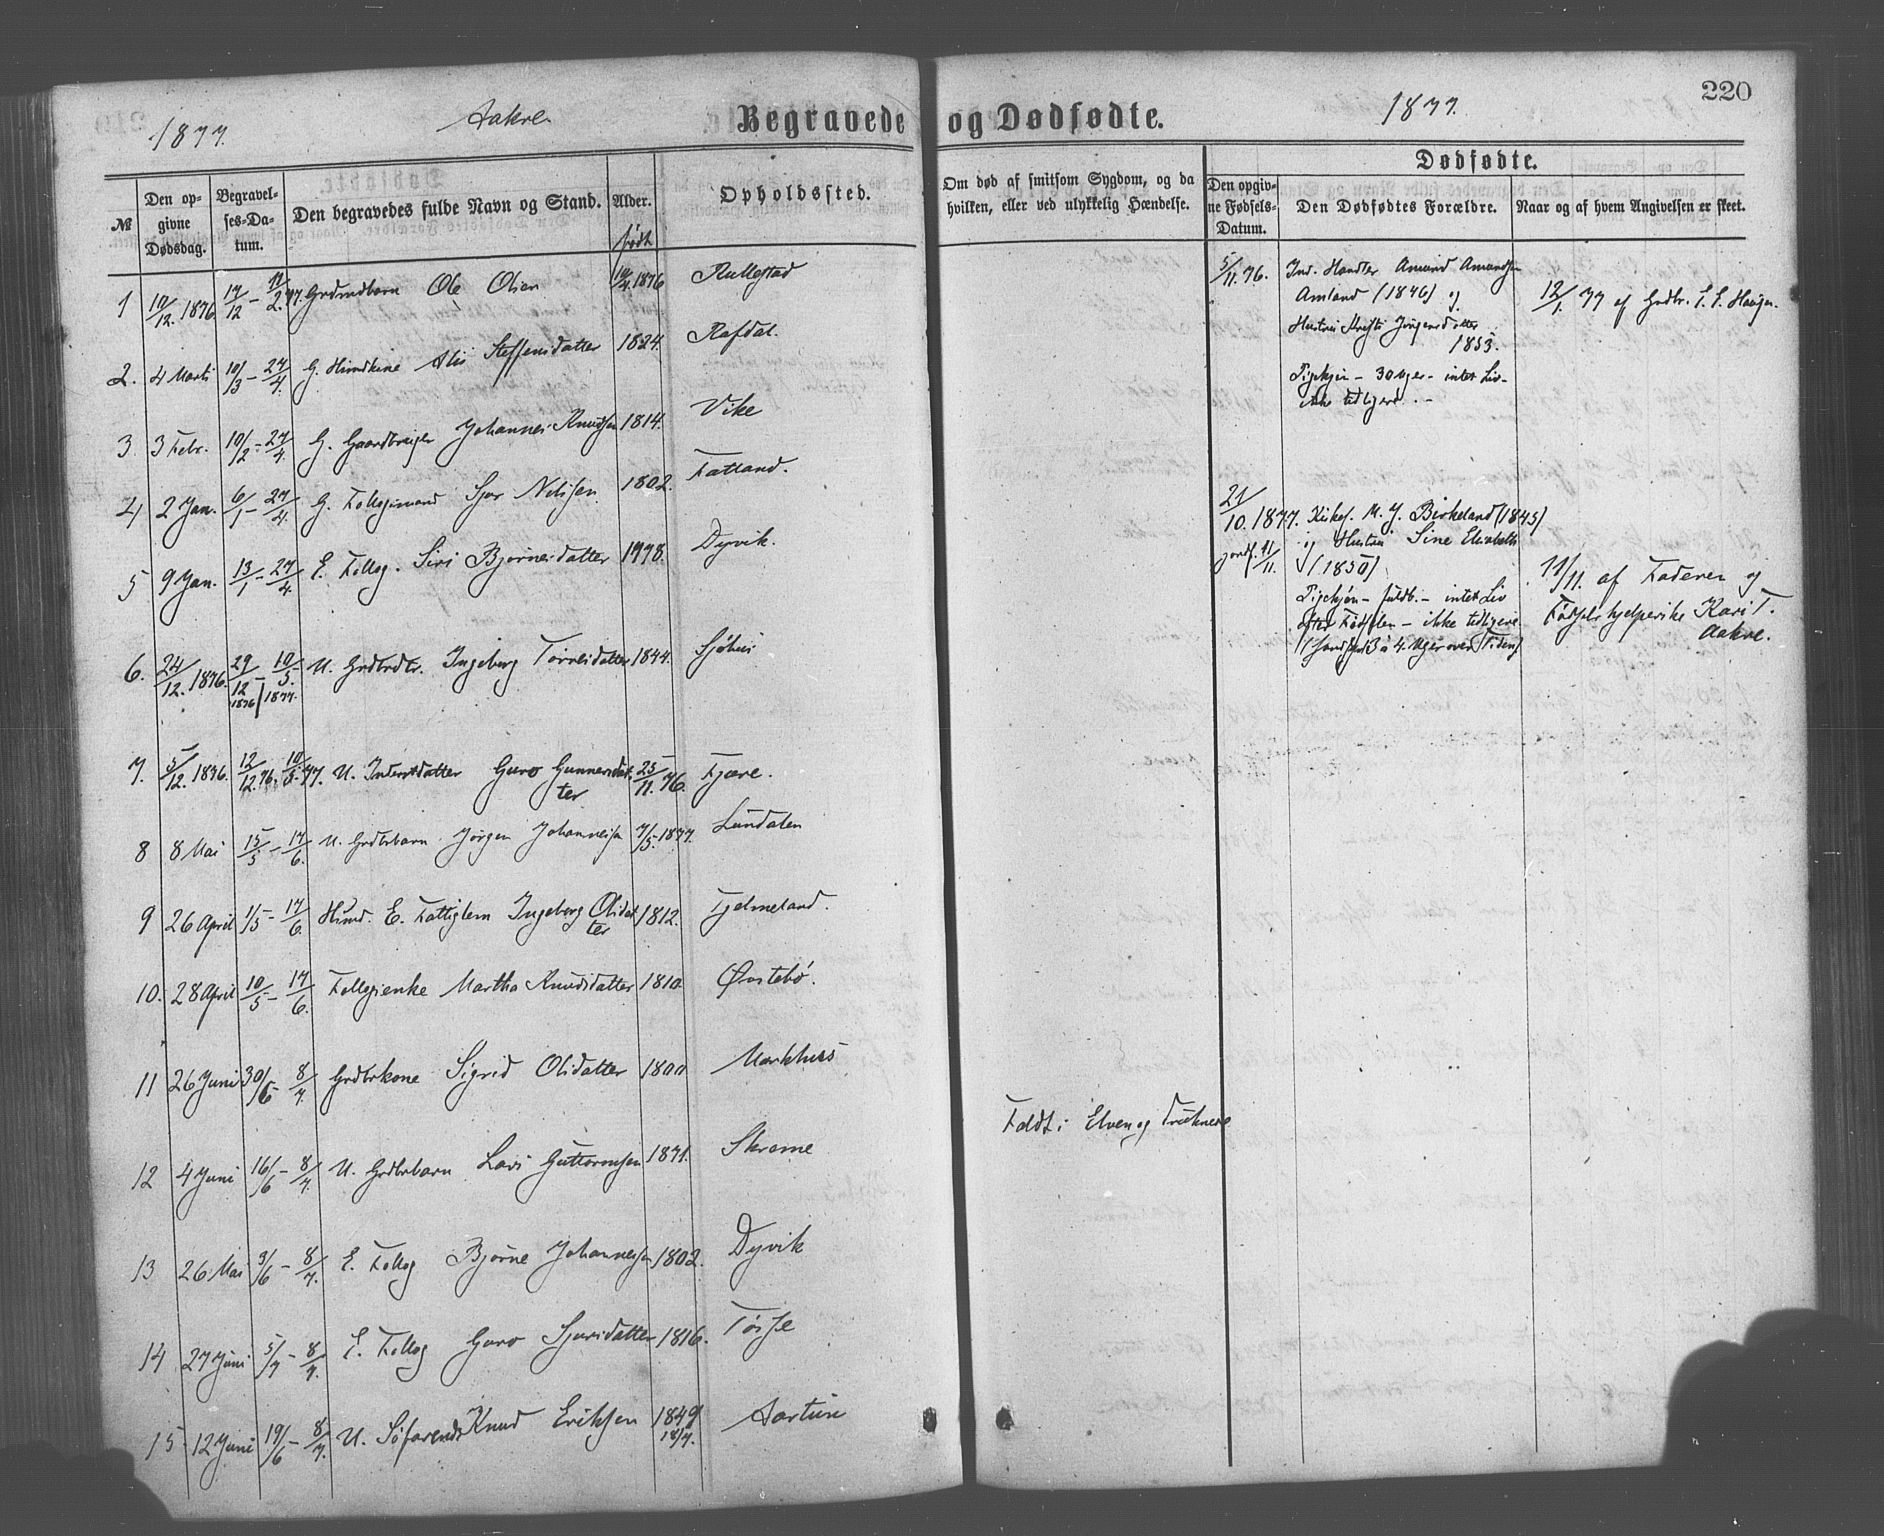 220
1877. Aakre Begravede og Dødfødte. 1877.
№ Den opgivne Dødsdag. Begravelses-Datum. Den begravedes fulde Navn og Stand. Alder. født Opholdssted.
Om død af smitsom Sygdom, og da hvilken, eller ved ulykkelig Hændelse.
Dødfødte.
Den opgivne Fødsels-Datum. Den Dødfødtes Forældre. Naar og af hvem Angivelsen er skeet.
1 10/12. 1876 17/12 - 11/2. 77. Grdmdbarn Ole Olsen 1876 Rullestad
2. 4 Marts 10/3 - 27/4. G. Steffensdatter 1824. Rafdal.
3 3 Febr. 10/2 - 27/4. G. Johannes Knudsen 1814. Vike
4 2 Jan. 6/1 - 27/4. G. Sjur Nilssen 1802. Fatland.
5 9 Jan. 13/1 - 27/4. E. Follog. Siri Bjørnesdatter 1778. Dyvik.
6. 24/12. 1876. 29/12 1876 - 10/5. 1877. U. Grdbrdtr. Ingeborg Tørresdatter 1844. Sjøhus
7. 5/12. 1876. 12/12. 76. - 10/5. 77. U. Inderstdatter Guro Gunnersdat
ter 25/11. 76. Fjære.
8 8 Mai 15/5 - 17/6. U. Grdbrbarn Jørgen Johannessen 7/5. 1877. Lundalen
9 26 April 1/5 - 17/6. E. Fattiglem Ingeborg Olsdat
ter 1812. Fjelmeland.
10. 28 April 10/5 - 17/6. Follogienke Martha Knudsdatter 1810 Østebø.
11 26 Juni 30/6 - 8/7. Grdbrkone Sigrid Olsdatter 1800 Markhus
12 4 Juni 16/6 - 8/7. U. Grdbrbarn Lars Guttormsen 1871. Skreme Faldt i Elven og druknede
13 26 Mai 3/6 - 8/7. E. Follog Bjørne Johannessen 1802. Dyvik
14 27 Juni 5/7 - 8/7. E. Follog Guro Sjursdatter 1816. Tøsse
15 12 Juni 19/6 - 8/7. U. Søfarende Knud Eriksen 1849 18/7. Aartun
5/11. 76. Ind. Handler Amund Amundsen
Amland (1846) og
Hustru Jørgensdatter
1853.
Pigekjøn - 30 Uger - intet Liv -
ikke tidligere. -
12/1. 77 af Grdbr. Haugen.
21/10. 1877. Kirkes. M. J. Birkeland (1845)
jordf. 11/11. og Hustru Sine Elisabeth
(1850)
Pigekjøn - fuldb. - intet Liv
efter Fødselen - ikke tidligere
3 à 4 Uger over Tiden)
11/11. af Faderen og
Fødselshjelperske Kari T.
Aakre.